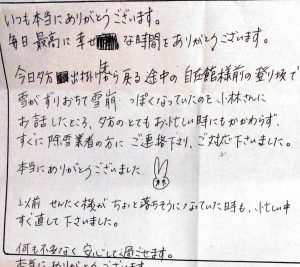 いつも本当にありがとうございます。
毎日最高に幸せな時間をありがとうございます。
今日夕方出掛け先から戻る途中の自在館様前の登り坂で
雪がずりおちて雪崩っぽくなっていたのを小林さんに
お話したところ、夕方のとてもお忙しい時にもかかわらず、
すぐに除雪業者の方にご連絡下さり、ご対応下さいました。
本当にありがとうございました
以前せんたく様がちょと落ちそうになっていた時も、忙しい中
すぐ直して下さいました。
何も不安なく安心して過ごせます。
本当にありがとうございます